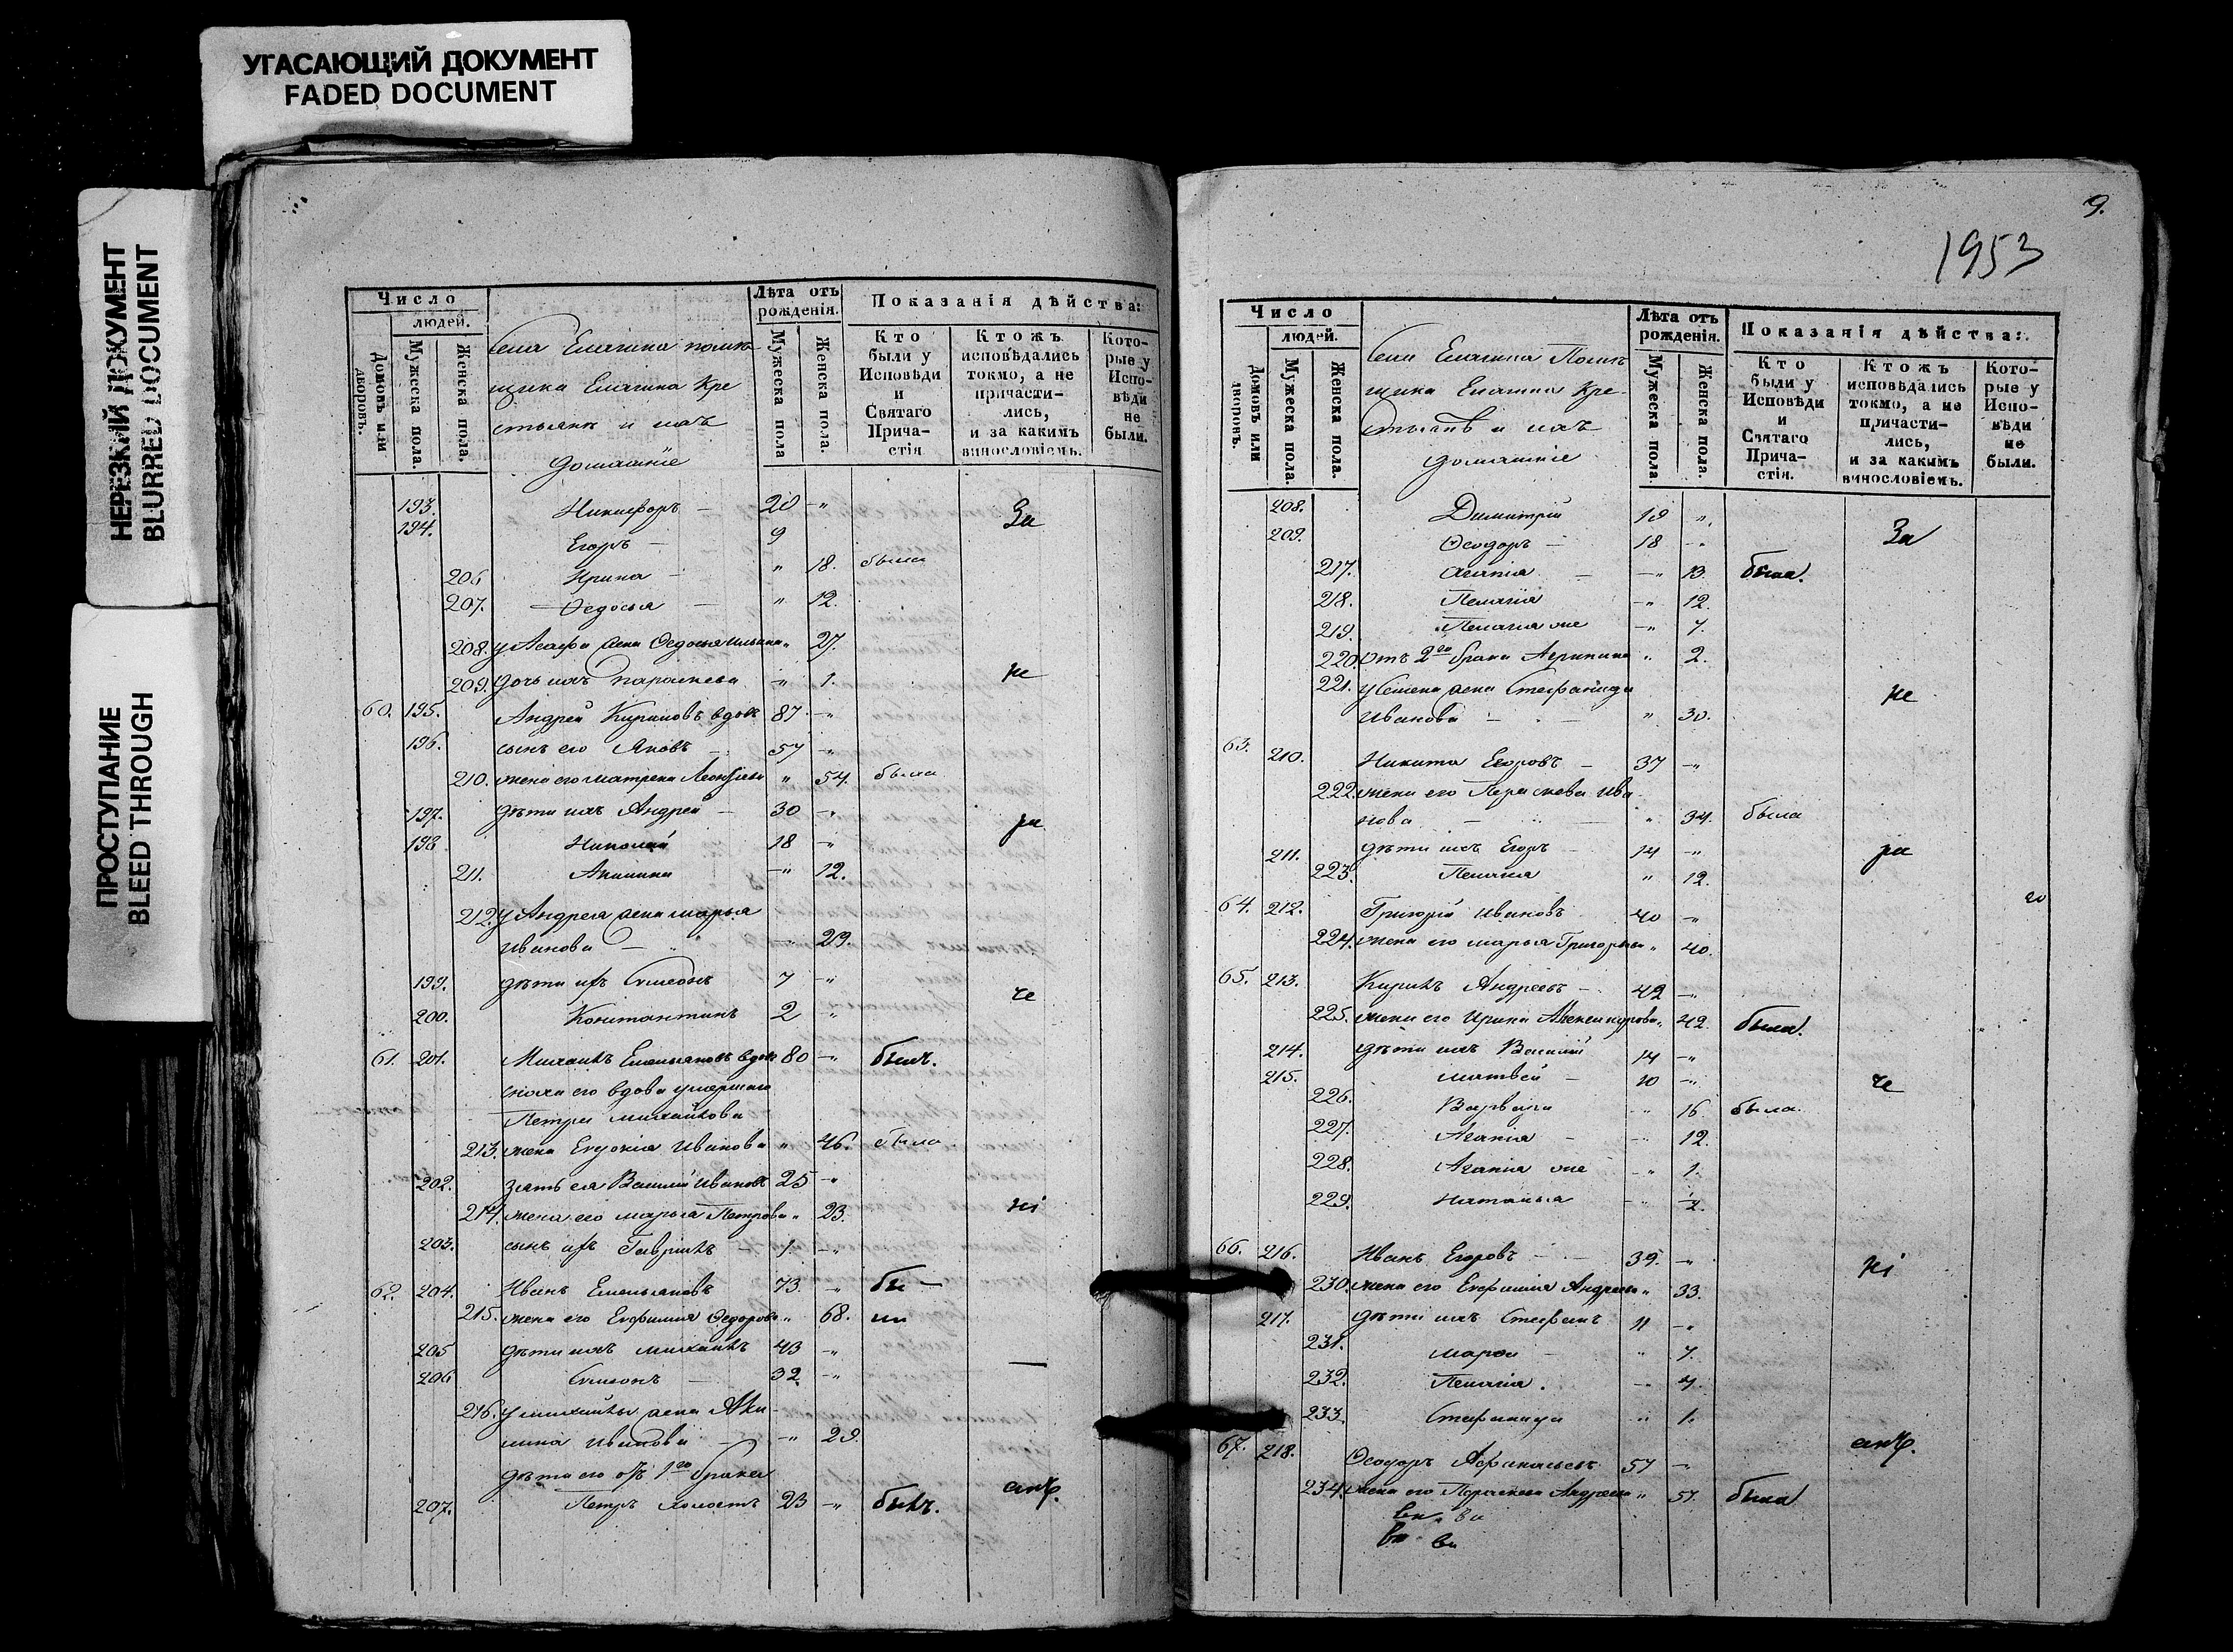 УГАСАЮЩИЙ ДОКУМЕНТ
FADED DOCUMENT
НЕРЕЗКИЙ ДОКУМЕНТ
BLURRED DOCUMENT
ПРОСТУПАНИЕ
BLEED THROUGH
Число
людей.
Домовъ или дворовъ.
Мужеска пола.
Женска пола.
села Елагина помѣ
щика Елагина Кре
стьяне и ихъ
домашніе
Лѣта отъ
рожденія.
Мужеска пола
Женска пола.
Показанія дѣйства:
Кто
были у
Исповѣди
и
Святаго
Прича-
стія
Ктожъ
исповѣдались
токмо, а не
причасти-
лись,
и за какимъ
винословіемъ.
Кото-
рые у
Испо-
вѣди
не
были.
193. Никифоръ — 20 —" За
194. Егоръ — 9
206 Ирина — " 18. была
207. Ѳедосья — " 12.
208. у жена Ѳедосья " 27.
209. дочь ихъ Параскева " 1. не
60. 195. Андрей Кириловъ вдов 87 —"
196. сынъ его Яковъ — 57 —"
210. жена его Матрена " 54. была
197. дѣти ихъ Андрей — 30 —" ра
198 Николай 18 —"
211. Акилина —" 12.
212. у Андрея жена Марья
Иванова — " 29.
199. дѣти ихъ Симеонъ 7 —" че
200. Константинъ 2 "
61. 201. Михаилъ Емельяновъ вдов 80 —" былъ.
сноха его вдова умершаго
Петра Михайлова
213. жена Евдокія Иванова " 46. была
202. зять ея Василій Ивановъ 25 —"
214. жена его Марья Петрова " 23. ні
203. сынъ ихъ Гавріилъ — 1. —"
62. 204. Иванъ Емельяновъ 73. —" бы —
215. жена его Евфимія Ѳедорова " 68. ли
205 дѣти ихъ Михаилъ 43 —"
206 Симеонъ — 32. —" —
216. у Михайлы жена Аки
лина Иванова — —" 29.
дѣти его отъ 1го брака
207. Петръ холостъ 23 —" былъ. емъ.
9.
1953
Число
людей.
Домовъ или дворовъ.
Мужеска пола.
Женска пола.
Села Елагина Помѣ
щика Елагина Кре-
стьянѣ и ихъ
домашніе
Лѣта отъ
рожденія.
Мужеска пола
Женска пола.
Показанія дѣйства:
Кто
были у
Исповѣди
и
Святаго
Прича-
стія.
Ктожъ
исповѣдались
токмо, а не
причасти-
лись,
и за какимъ
винословіемъ.
Кото-
рые у
Испо-
вѣди
не
были.
208. Димитрій 19 ".
209. Ѳеодоръ — 18 —" За
217. Агапія — —" 13. была.
218. Пелагія —" 12.
219. Пелагія —" 7.
220. Отъ 2го брака " 2.
221. у Семена жена Стефанида
Иванова — — " 30. не
63. 210. Никита Егоровъ — 37 —"
222. жена его Параскева Ива
нова — — " 34. была
211. дѣти ихъ Егоръ 14 —" ра
223. Пелагія " 12.
64. 212. Григорій Ивановъ 40 —"
224. жена его Марья Григорьева " 40.
65. 213. Кирилъ Андреевъ — 42 —"
225. жена его Ирина Александрова " 42. была.
214. дѣти ихъ Василій 14 —"
215. Матвей — 10 —" че
226. Варвара —" 16. была.
227. Агапія — —" 12.
228. Агапія —" 1.
229. Наталья —"
66. 216. Иванъ Егоровъ — — 39. —" ні
230. жена его Евфимія Андреева " 33.
217. дѣти ихъ Стефанъ 11 —"
231. Марѳа — " 7.
232. Пелагія. —" 4.
233. Стефанида " 1.
67. 218. Ѳеодоръ Афанасьевъ 57 —" емъ.
234. жена его Параскева Андреева " 57. была